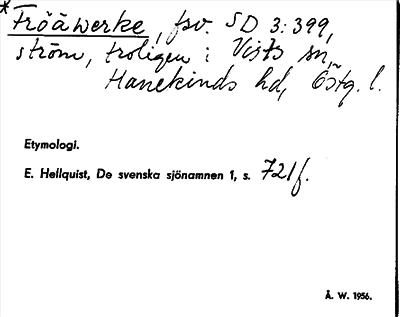 *Fröåwerke, fsv. SD 3:399,
ström, troligen i Vists sn,
Hanekinds hd, Östg. l.
Etymologi.
E. Hellquist, De svenska sjönamnen 1, s. 721f.
Å. W. 1956.